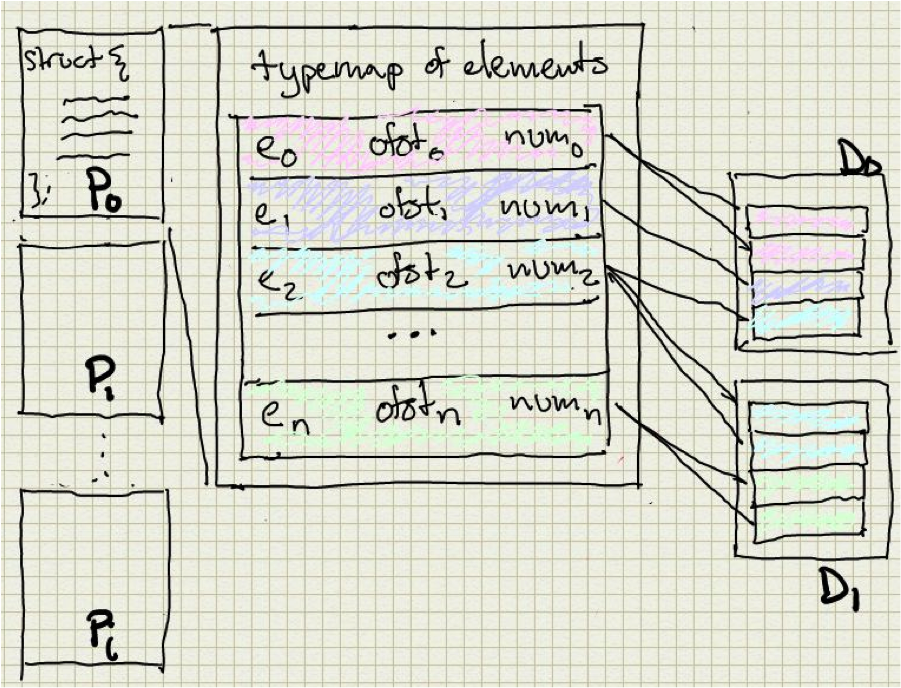 struct {
};
P0
P1
typemap of elements
e0 ofst0 num0
e1 ofst1 num1
e2 ofst2 num2
...
en ofstn numn
D0
D1